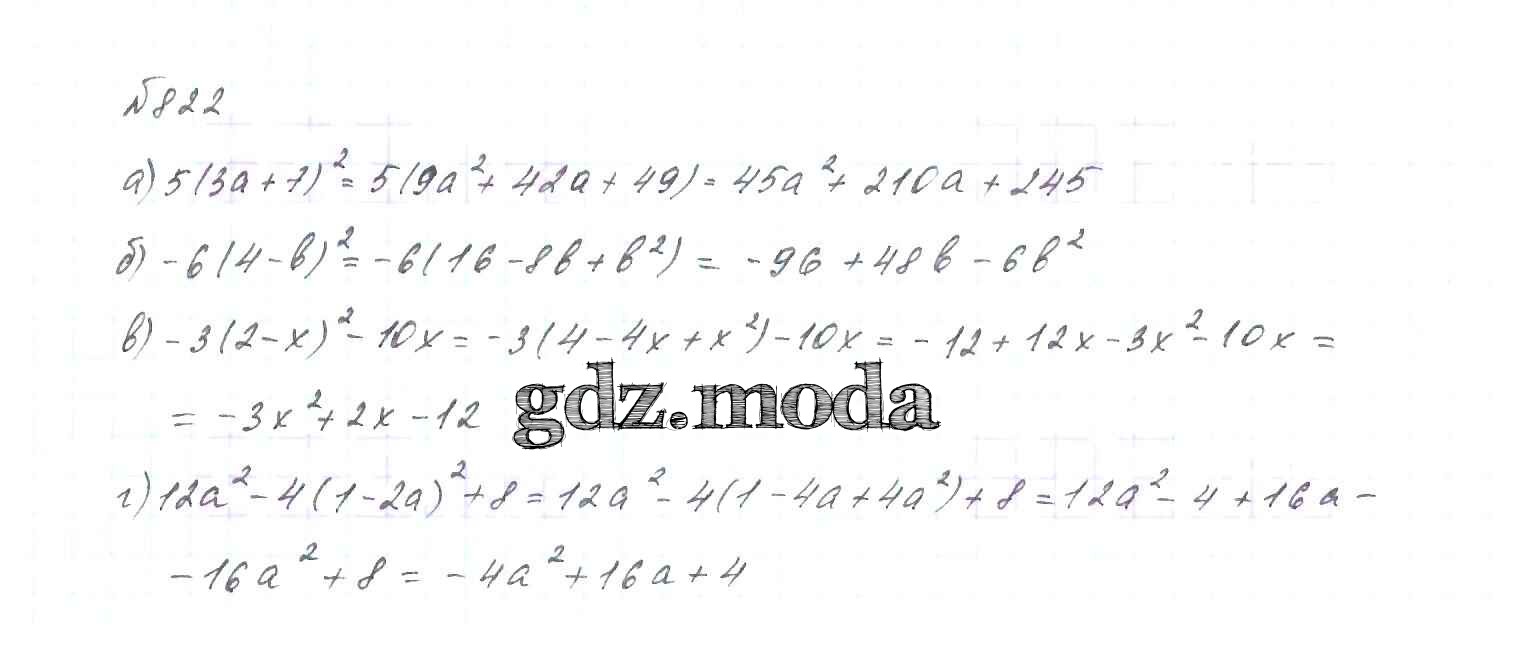 №822
а) 5(3a+7)²= 5(9a²+ 42a+49)= 45a²+ 210a+245
б) -6(4-b)²= -6(16-8b+b²) = -96 +48b-6b²
в) -3(2-x)²- 10x= -3(4-4x+x²)-10x = -12+12x-3x²-10x =
= -3x²+2x-12
gdz.moda
г) 12a²-4(1-2a)²+8=12a²-4(1-4a+4a²)+8=12a²-4+16a-
-16a²+8= -4a²+16a+4